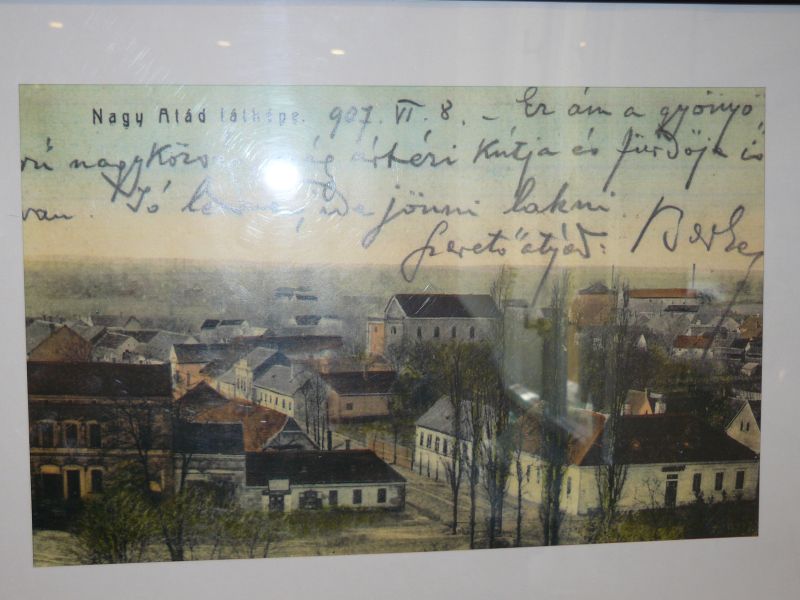 Nagy Atád látképe. 907. VI. 8. - Ez ám a gyönyö
rű nagyközség ártézi kútja és fürdője is
van. Jó lenne, ide jönni lakni.
Szerető atyád: